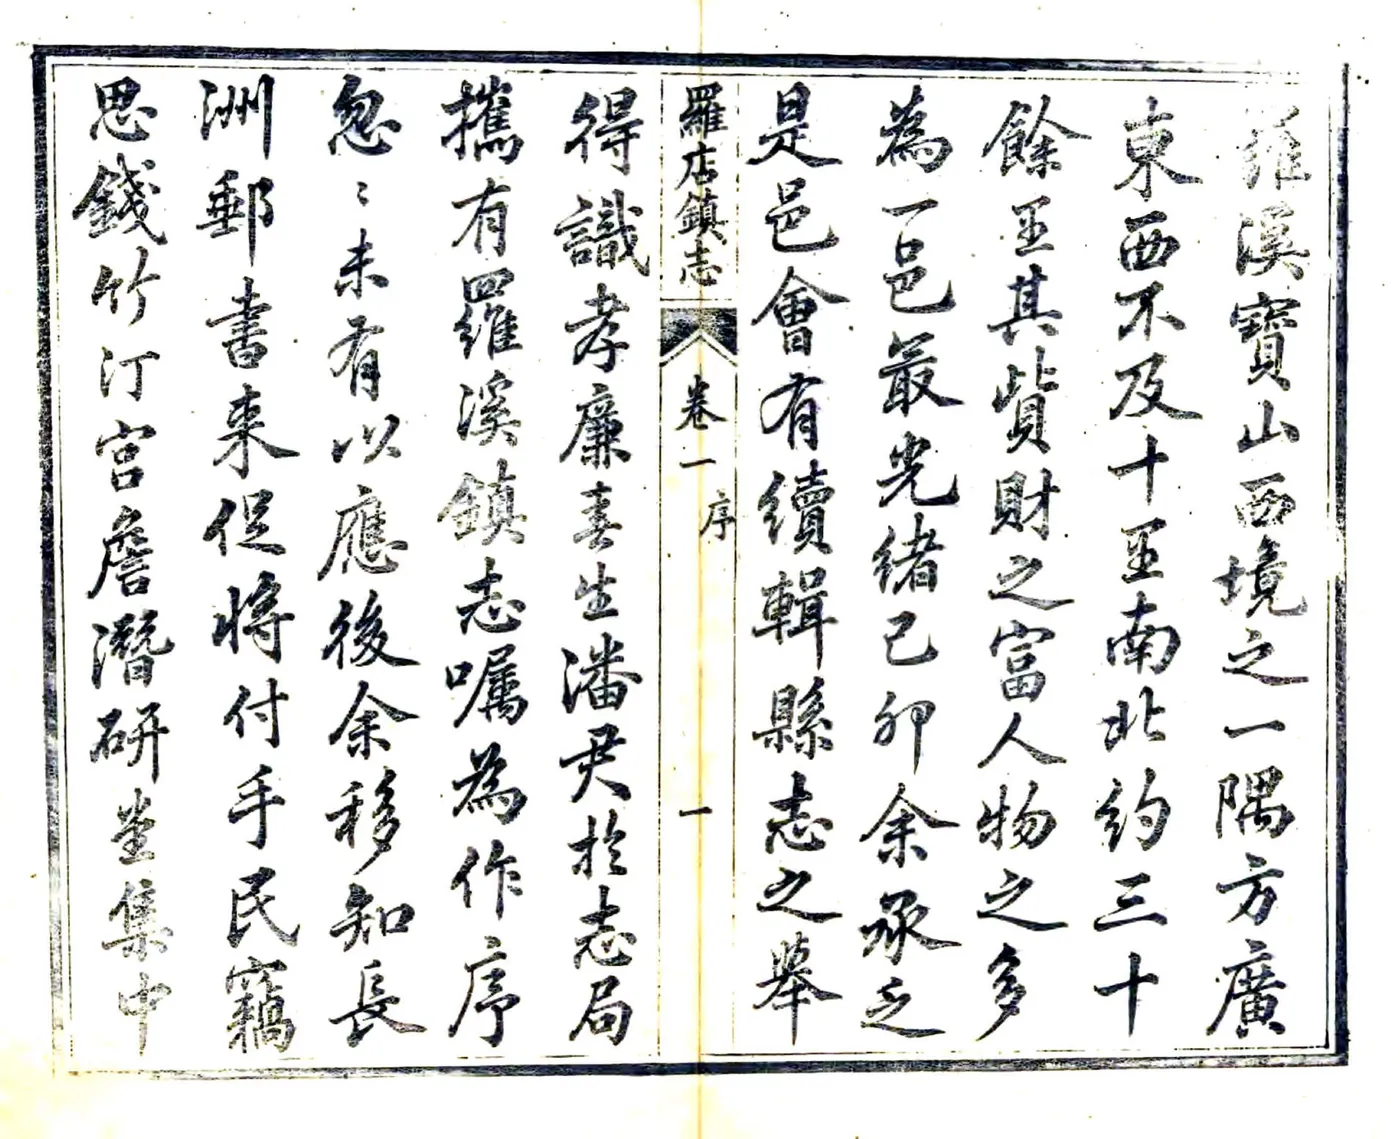 羅溪寶山西境之一隅方廣
東西不及十里南北約三十
餘里其貲財之富人物之多
為一邑最光緒己卯余承乏
是邑會有續輯縣志之舉
羅店鎮志
卷一
序
一
得識孝廉春生潘君於志局
攜有羅溪鎮志囑為作序
忽〻未有以應後余移知長
洲郵書来促將付手民竊
思錢竹汀宫詹潛研堂集中